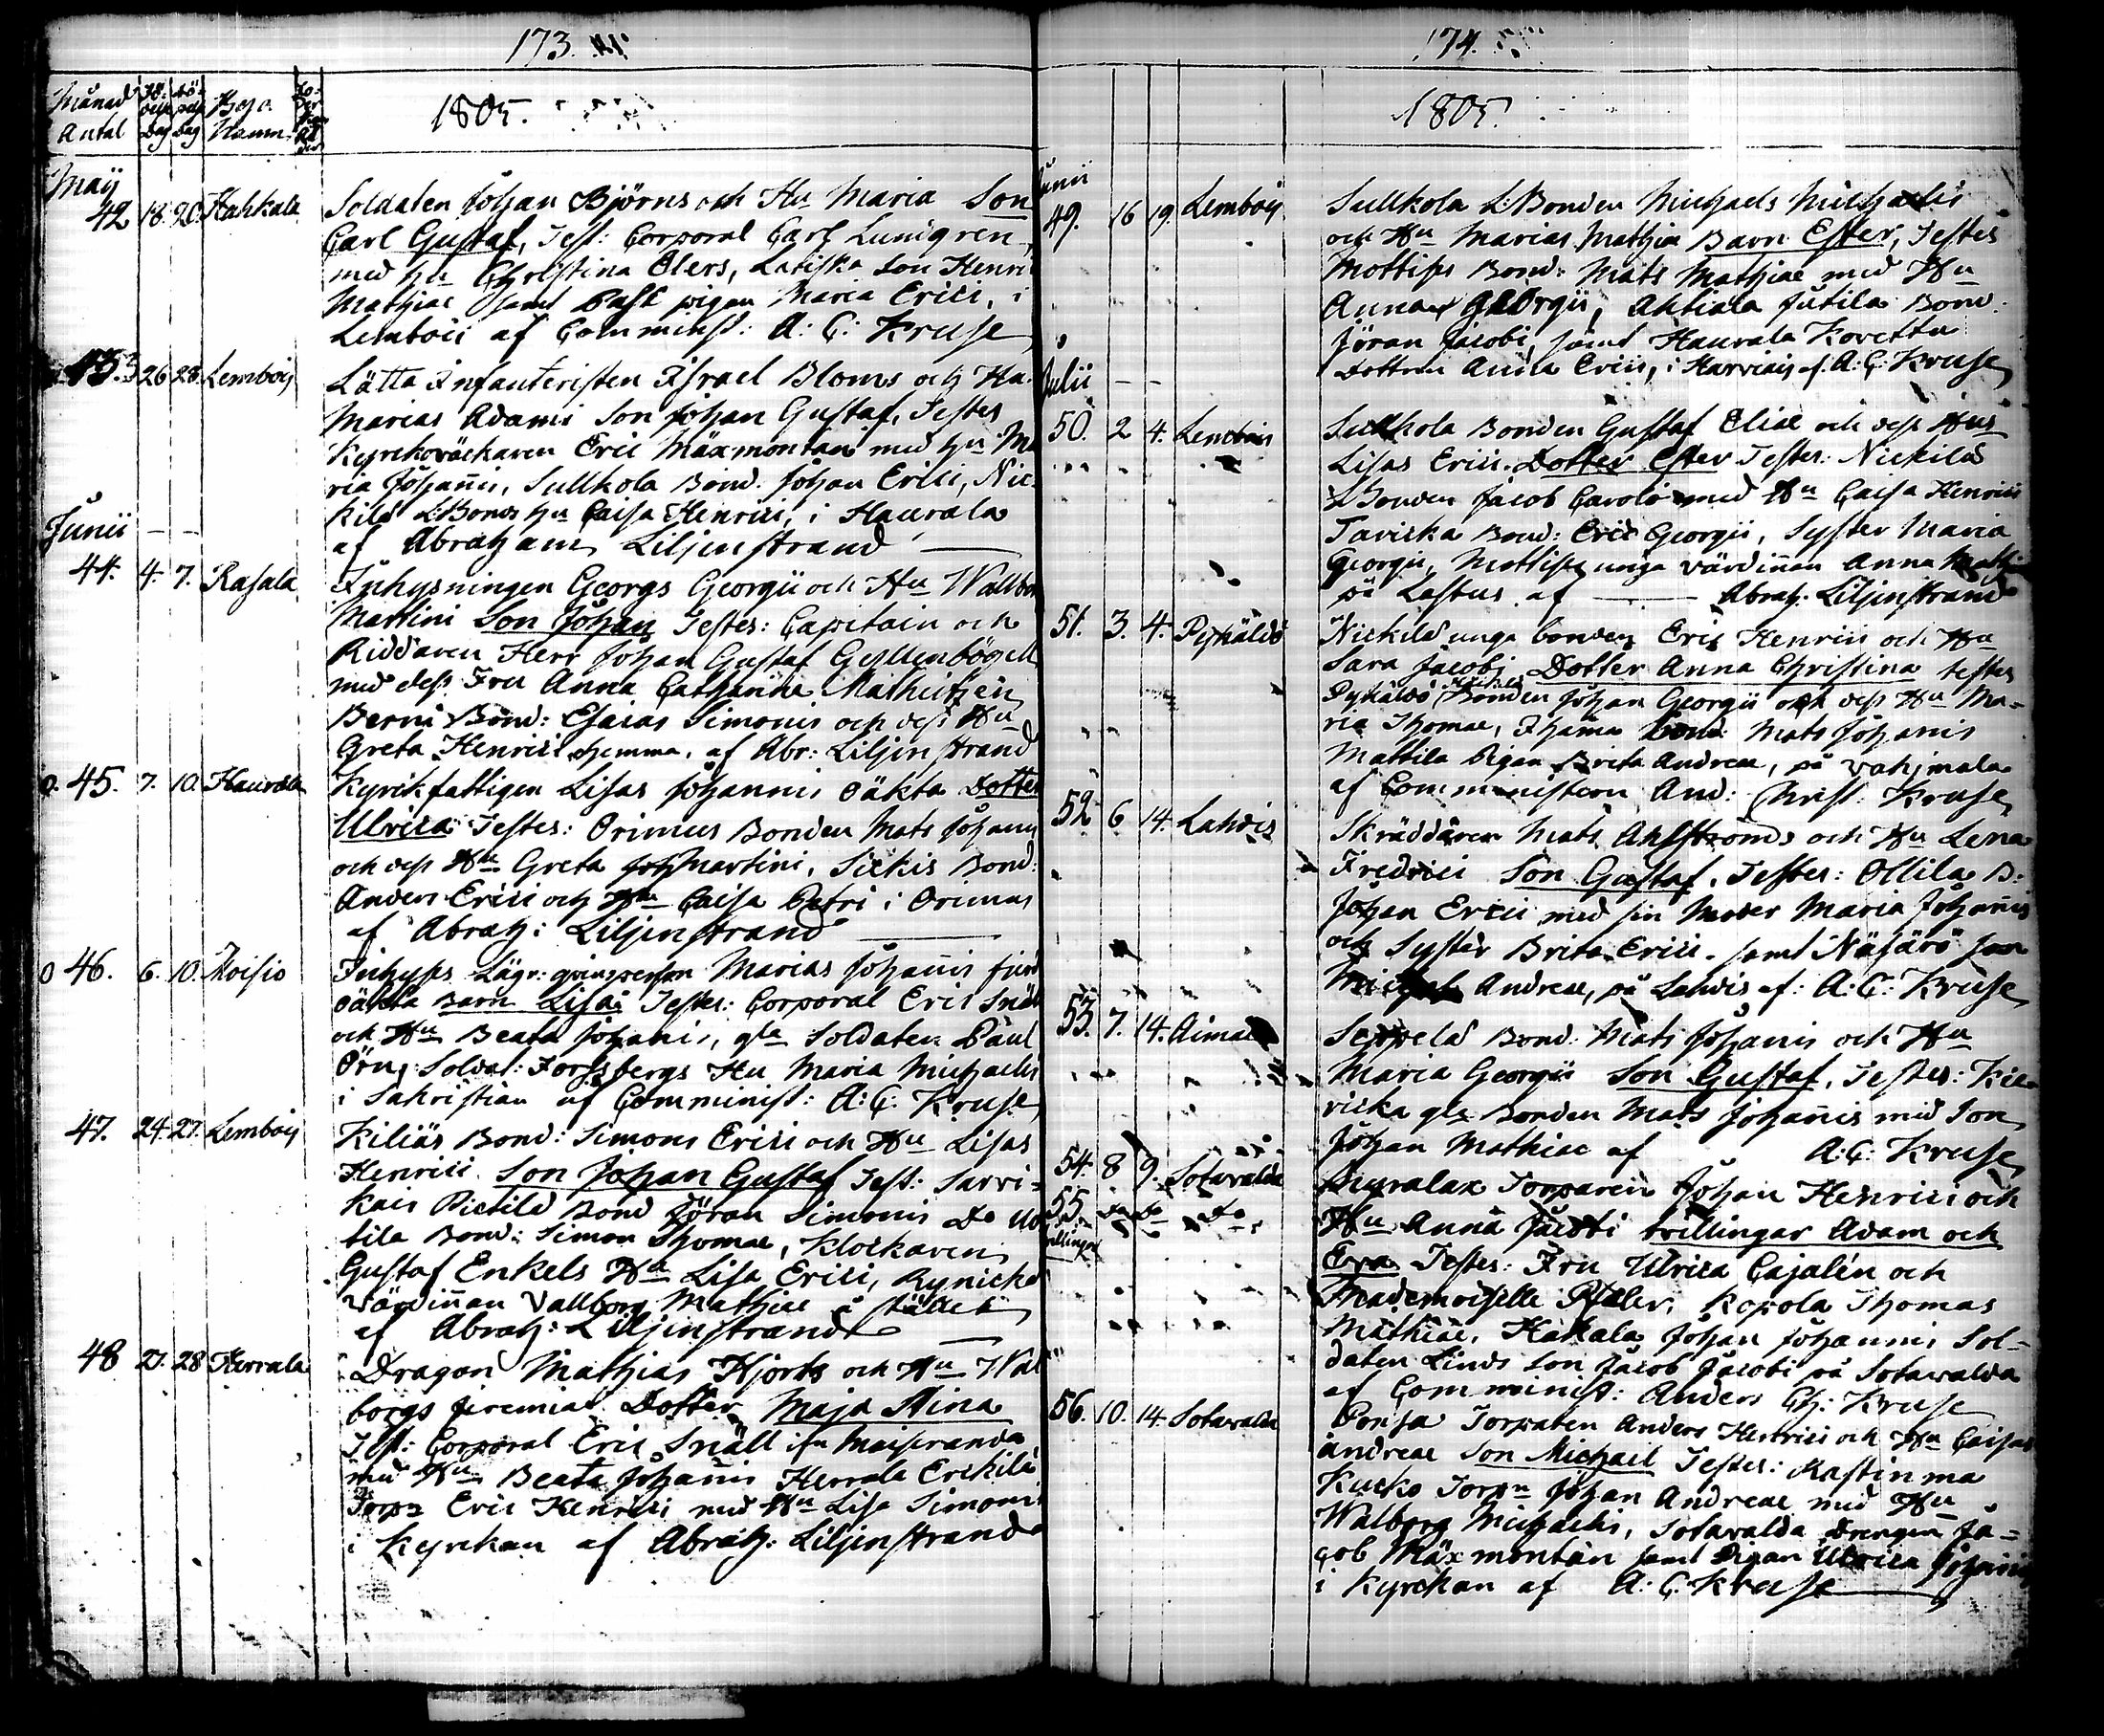 173.
Månad Fö- Dö- Bys
delse pelse
Antal Dag Dag Namn
1805.
Maij
42 18. 20. Hahkala Soldaten Johan Björns och Hu Maria Son
Carl Gustaf, Test: Corporal Carl Lundgren
med hu Christina Elers, Latiska Son Henric
Mathiae samt pigan Maria Erici, i
Lembois af Comminist: A: C: Kruse
43. 26 28. Lembois Lätta Infanteristen Israel Bloms och Hu
Marias Adami Son Johan Gustaf, Testes
Kyrckoväckaren Eric Mäxmontan med hu Ma
ria Johannis, Sullkola Bond. Johan Erici, Nic-
kilä Bonds hu Caisa Henrici, i Haurala
af Abraham Liljenstrand
Junii
44. 4. 7. Rasala Inhysningen Georgs Georgii och Hu Wallbor
Martini Son Johan Testes: Capitain och
Riddaren Herr Johan Gustaf Gyllenbögell
med dess Fru Anna Catharina
Berni Bond: Esaias Simonis och dess Hu
Greta Henrici hemma. af Abr: Liljenstrand
0. 45. 7. 10. Haurala Kyrckfattigen Lisas Johannis oäkta Dotter
Ulrica Testes: Orimus Bonden Mats Johannis
och dess Hu Greta Martini, Sickis Bond:
Anders Erici och Hu Caisa Petri i Orimus
af Abrah: Liljenstrand
0 46. 6. 10. Moisio Inhyses Lägr: qvinsperson Marias Johannis
oäkta Barn Lisa Testes: Corporal Eric Snäll
och Hu Beata Johannis, gla Soldaten Paul
Örn, Soldat: Forssbergs Hu Maria Michaelis
i Sakristian af Comminist: A: C: Kruse
47. 24. 27. Lembois Kiliäs Bond: Simons Erici och Hu Lisas
Henrici Son Johan Gustaf Test: Sarvi-
kais Pietilä Bond Jöran Simonis Do
tila Bond: Simon Thomae, Klockaren
Gustaf Enkels Hu Lisa Erici,
värdinnan Vallborg Mathiae å stället
af Abrah: Liljenstrand
48 27. 28 Herrala Dragon Mathias Hjorts och Hu Wal
borgs Jeremiae Dotter Maja Stina
Test: Corporal Eric Snäll
med Hu Beata Johannis Herrala Erickilä
Torp: Eric Henrici med Hu Lisa Simonis
i Kyrckan af Abrah: Liljenstrand
174.
1805.
Junii
49. 16 19. Lembois Sullkola Bonden Michaels Michaelis
och Hu Marias Mathiae Barn Ester, Testes
Mottiss Bond: Mats Mathiae med Hu
Anna Georgii, Ahtiala Jutila Bond.
Jöran Jacobi, samt Haurala Kovetta
Dottren Anna Erici, i Harviais af. A: C: Kruse
Julii
50. 2 4. Lembois Sullkola Bonden Gustaf Eliae och dess Hus
Lisas Erici. Dotter Ester Testes: Nickilä
Bonden Jacob Caroli med Hu Caisa Henrici
Taviska Bond: Eric Georgii, Syster Maria
Georgii, Mottiss unga värdinnan Anna
på Lastus af Abrah. Liljenstrand
51. 3. 4. Pyhäldö Nickilä unga bonden Eric Henrici och Hu
Sara Jacobi Dotter Anna Christina testes
Pyhäldö Bonden Johan Georgii och dess Hu Ma-
ria Thomae, Bond Mats Johannis
Mattila Pigan Brita Andreae, på
af Comministern And: Christ: Kruse
52 6 14. Lahdis Skräddaren Mats Ahlströms och Hu Lena
Fredrici Son Gustaf. Testes: Ollila B:
Johan Erici med sin Moder Maria Johannis
och Syster Brita Erici. samt
Andreae, på Lahdis af: A: C: Kruse
53. 7. 14. Seppelä Bond. Mats Johannis och Hu
Maria Georgii Son Gustaf, Testes:
gla Bonden Mats Johannis med Son
Johan Mathiae af A: C: Kruse
54. 8 9. Sotavalda Torparen Johan Henrici och
55. Do Do Do Hu Anna Jacobi tvillingar Adam och
tvillingar
Eva Testes: Fru Ulrica Cajalén och
Mademoiselle Kopola Thomas
Mathiae, Hakala Johan Johannis Sol-
daten Linds Son Jacob Jacobi på Sotavalda
af Comminist: Anders Ch: Kruse
56. 10. 14. Sotavalda Ponsa Torparen Anders Henrici och Hu Caisas
Andreae Son Michael Testes:
Kucko Torpn Johan Andreae med Hu
Walborg Michaelis, Sotavalda Drengen Ja-
cob Mäxmontan samt Pigan Ulrica Johannis
i Kyrckan af A: C: Kruse